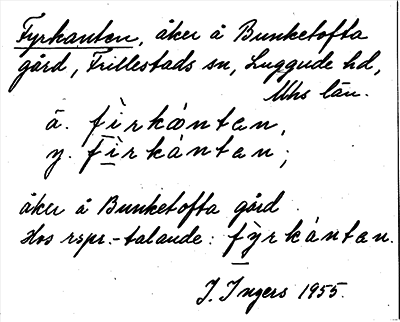 Fyrkanten, åker å Bunketofta
gård, Frillestads sn, Luggude hd,
Mhs län.
ä. fìrkánten,
y. fìrkánten;
åker å Bunketofta gård
Hos rspr.-talande: fỳrkánten.
J. Ingers 1955.